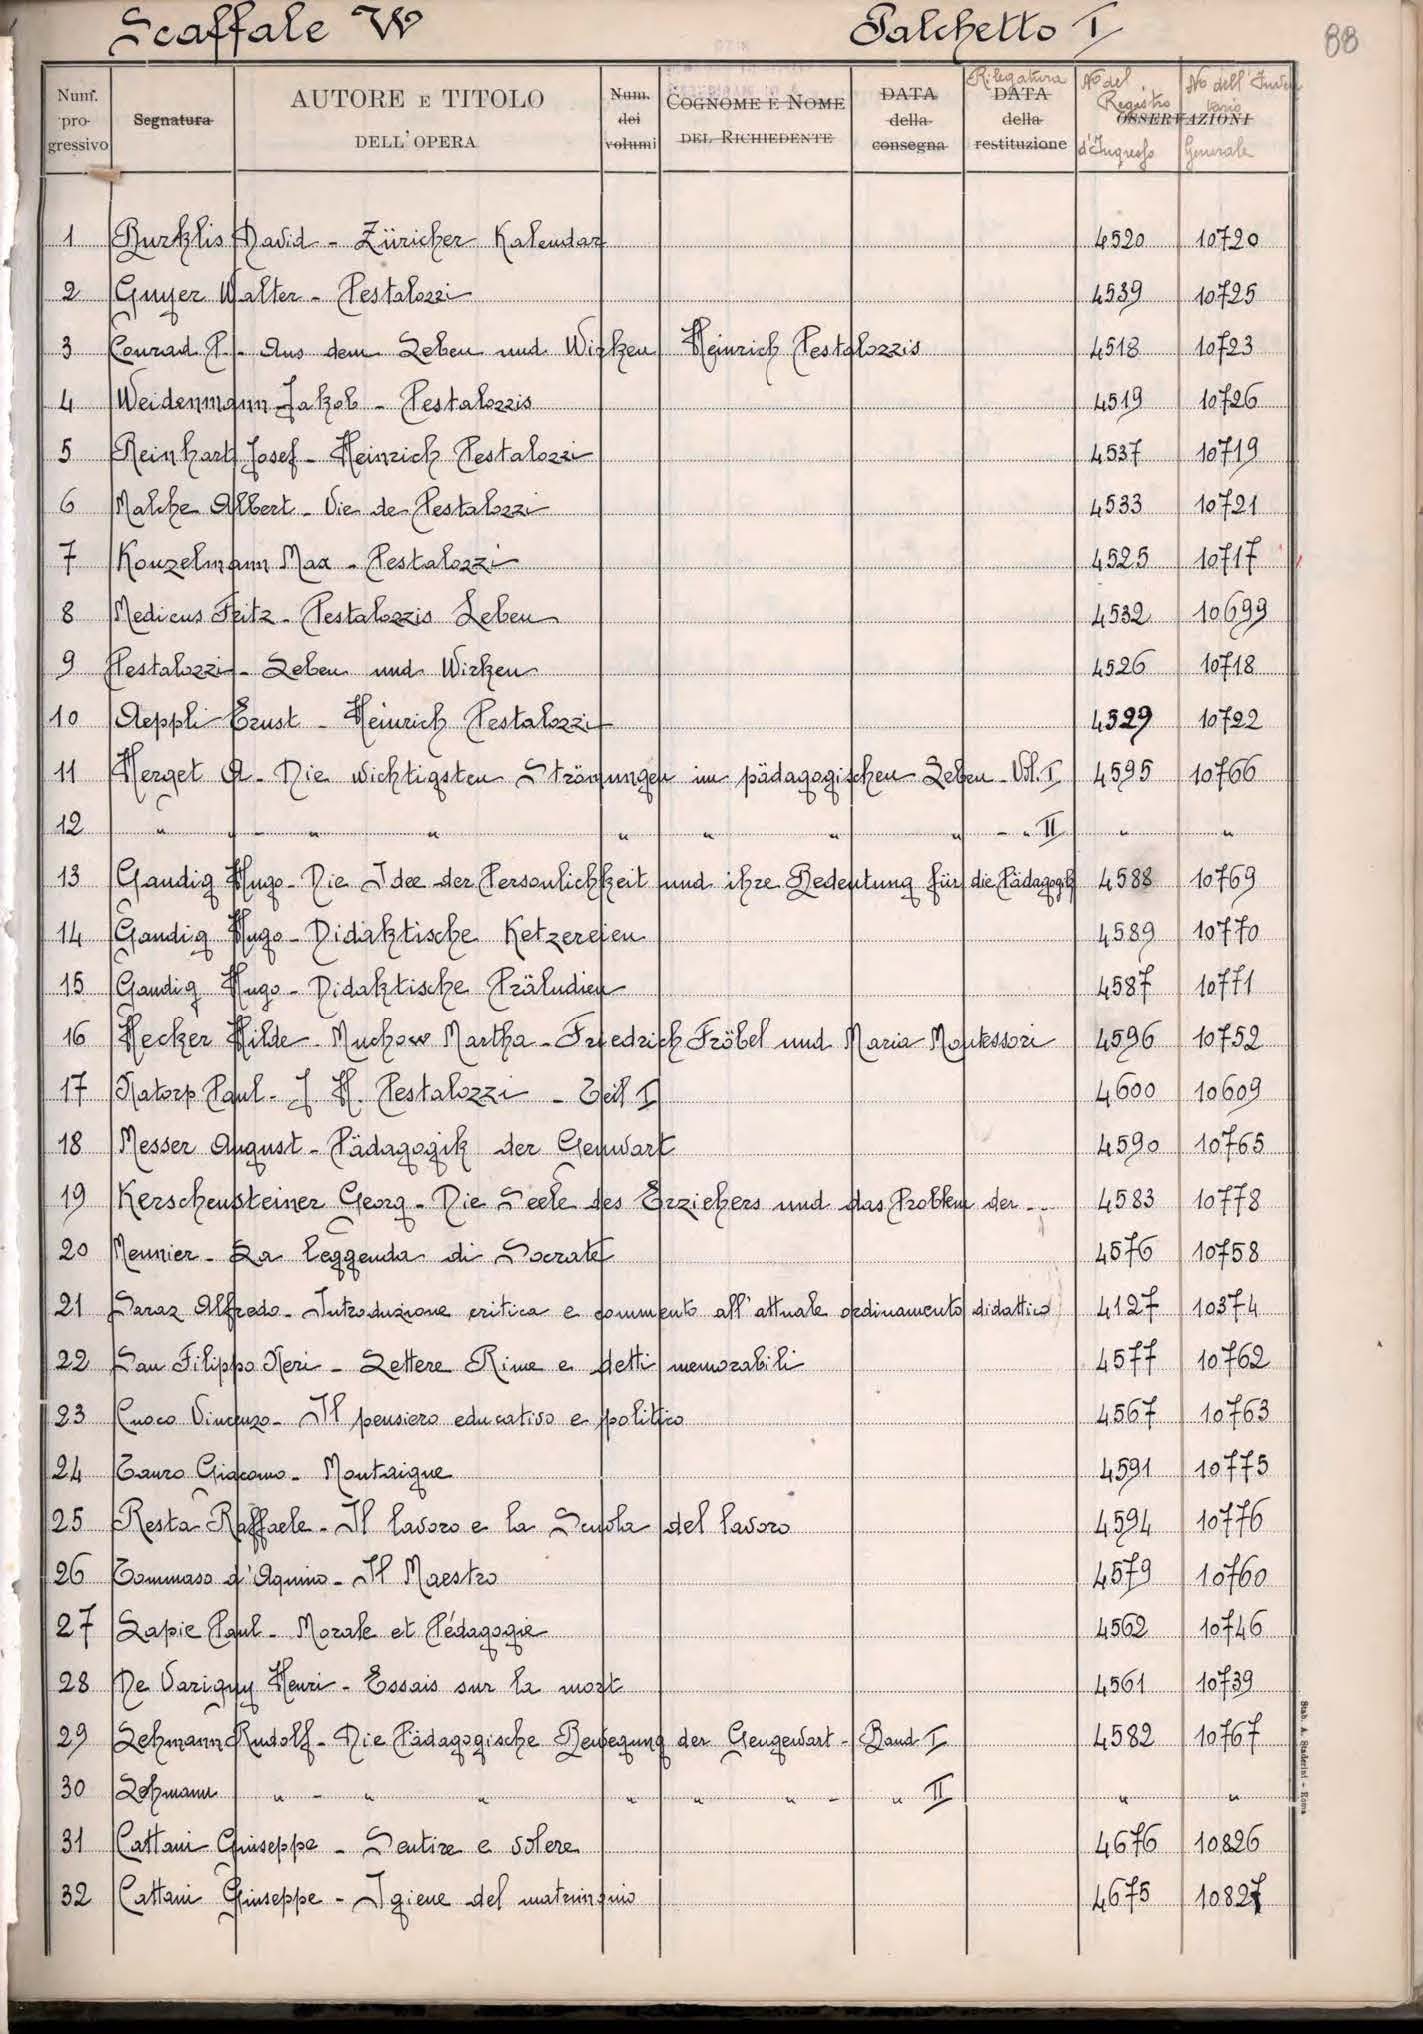 Scaffale W Palchetto I 88
Num. progressivo Segnatura AUTORE E TITOLO DELL'OPERA Num. dei volumi COGNOME E NOME DEL RICHIEDENTE DATA della consegna Rilegatura DATA della restituzione No del Registro d'Ingresso OSSERVAZIONI No dell'Inventario Generale
1 Burklis David - Züricher Kalendar 4520 10720
2 Guyer Walter - Pestalozzi 4539 10725
3 Conrad P. - Aus dem Leben und Wirken Heinrich Pestalozzis 4518 10723
4 Weidenmann Jakob - Pestalozzis 4519 10726
5 Reinhart Josef - Heinrich Pestalozzi 4537 10719
6 Malche Albert - Vie de Pestalozzi 4533 10721
7 Konzelmann Max - Pestalozzi 4525 10717
8 Medicus Fritz - Pestalozzis Leben 4532 10699
9 Pestalozzi - Leben und Wirken 4526 10718
10 Aeppli Ernst - Heinrich Pestalozzi 4529 10722
11 Herget A - Die wichtigsten Strömungen im pädagogischen Leben - Vol. I 4595 10766
12 " " - " " " " " " - " II " "
13 Gaudig Hugo - Die Idee der Personlichkeit und ihre Bedeutung für die Pädagogik 4588 10769
14 Gaudig Hugo - Didaktische Ketzereien 4589 10770
15 Gaudig Hugo - Didaktische Präludien 4587 10771
16 Hecker Hilde - Muchow Martha - Friedrich Fröbel und Maria Montessori 4596 10752
17 Natorp Paul - J H. Pestalozzi - Teil I 4600 10609
18 Messer August - Pädagogik der Genwart 4590 10765
19 Kerschensteiner Georg - Die Seele des Erziehers und das Problem der ... 4583 10778
20 Meunier - La leggenda di Socrate 4576 10758
21 Saraz Alfredo - Introduzione critica e commento all'attuale ordinamento didattico 4127 10374
22 San Filippo Neri - Lettere Rime e detti memorabili 4577 10762
23 Cuoco Vincenzo - Il pensiero educativo e politico 4567 10763
24 Tauro Giacomo - Montaigne 4591 10775
25 Resta Raffaele - Il lavoro e la Scuola del lavoro 4594 10776
26 Tommaso d'Aquino - Il Maestro 4579 10760
27 Lapie Paul - Morale et Pédagogie 4562 10746
28 De Varigny Henri - Essais sur la mort 4561 10739
29 Lehmann Rudolf - Die Pädagogische Bewegung der Gengewart - Band I 4582 10767
30 Lehmann " - " " " " " - " II " "
31 Cattani Giuseppe - Sentire e volere 4676 10826
32 Cattani Giuseppe - Igiene del matrimonio 4675 10827
Stab. A. Staderini - Roma